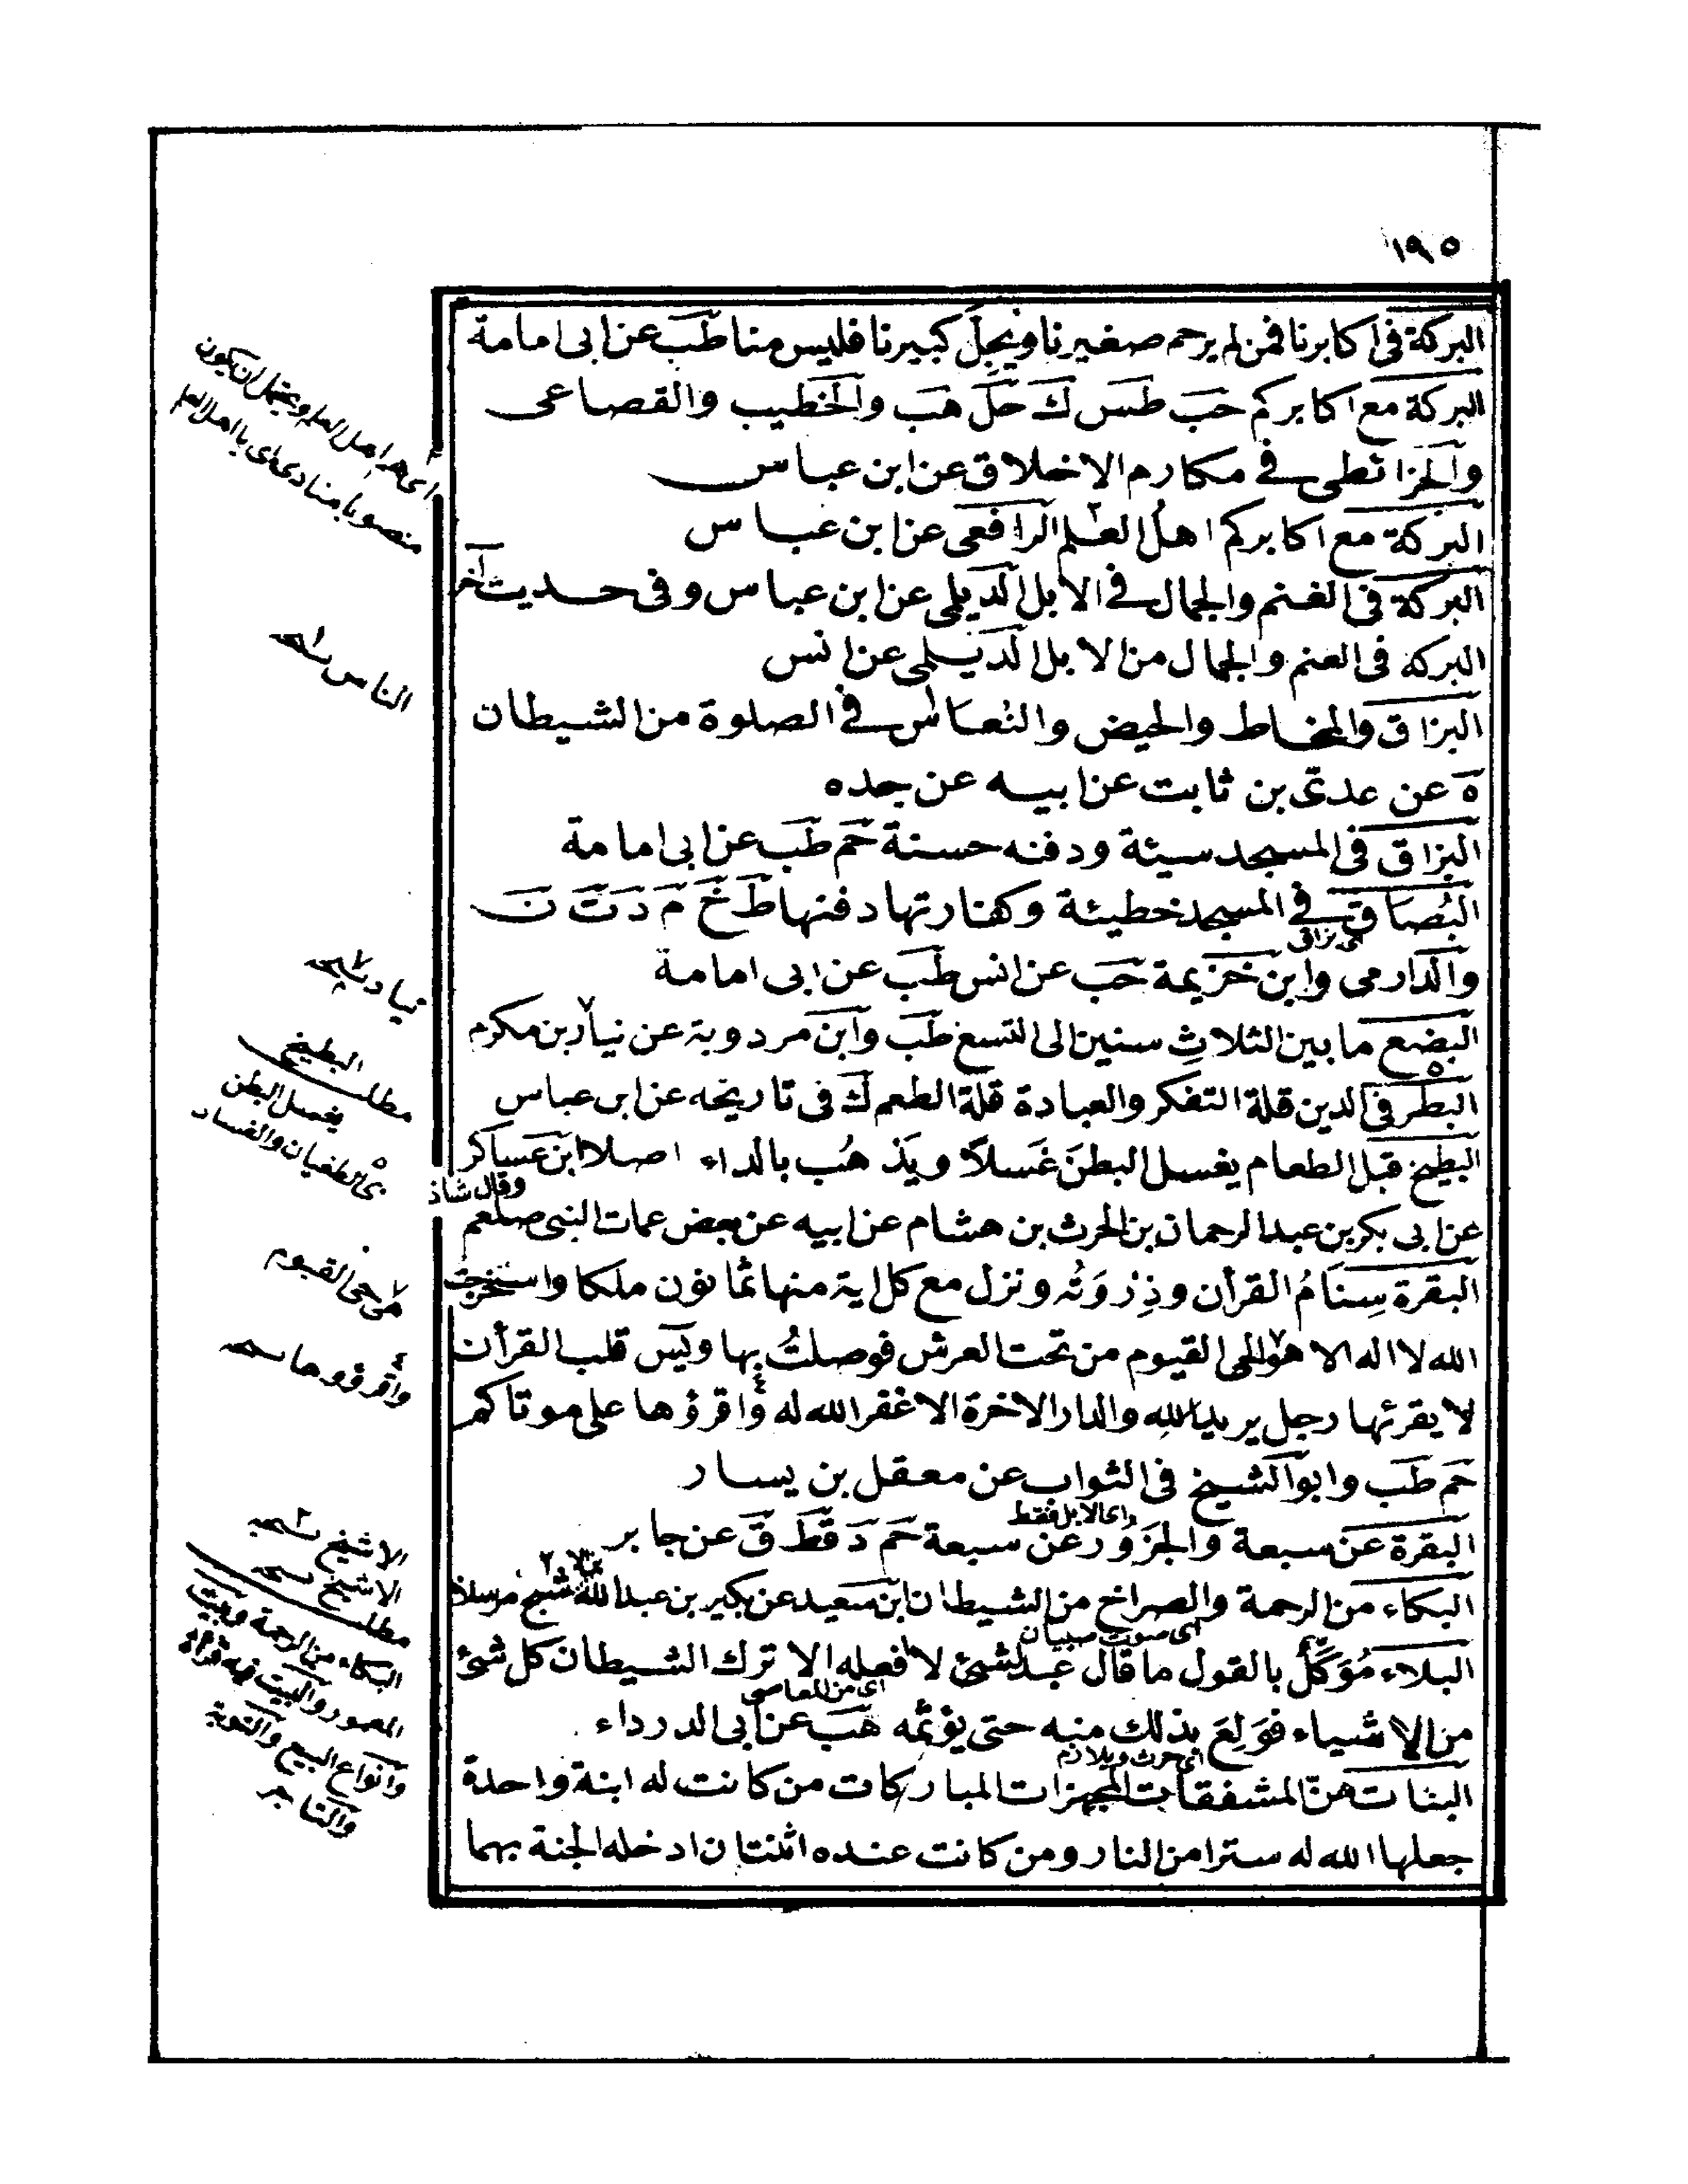 ١٩٥
البركة فى اكابرنا فمن لم يرحم صغيرنا ويجلّ كبيرنا فليس منا طب عن ابى امامة
البركة مع اكابركم حب طس ك حل هب والخطيب والقصاعى
والخرائطى فى مكارم الاخلاق عن ابن عباس
البركة مع اكابركم اهل العلم الرافعى عن ابن عباس
البركة فى الغنم والجمال فى الابل الديلمى عن ابن عباس وفى حديث آخر
البركه فى الغنم والجمال من الابل الديلمى عن انس
البزاق والمخاط والحيض والنعاس فى الصلوة من الشيطان
ه عن عدىّ بن ثابت عن ابيه عن جده
البزاق فى المسجد سيئة ودفنه حسنة حم طب عن ابى امامة
البُصَاق فى المسجد خطيئة وكفارتها دفنها ط خ م د ت ن
اى بزاق
والدارمى وابن خزيمة حب عن انس طب عن ابى امامة
البضع ما بين الثلاثِ سنين الى التسع طب وابن مردوية عن نيار بن مكرم
البطر فى الدين قلة التفكر والعبادة قلة الطعم ك فى تاريخه عن ابن عباس
البطيخ قبل الطعام يغسل البطنَ غَسلاً ويَذهُب بالداء اصلا ابن عساكر
وقال شاذ
عن ابى بكر بن عبد الرحمان بن الحرث بن هشام عن ابيه عن بعض عمات النبى صلعم
البقرة سِنَامُ القرأن وذِروَتُه ونزل مع كل اية منها ثمانون ملكا واستخرجت
الله لا اله الا هو الحى القيوم من تحت العرش فوصلتُ بها ويس قلب القرأن
لا يقرئها رجل يريد الله والدار الاخرة الا غفر الله له واقرؤها على موتاكم
حم طب وابو الشيخ فى الثواب عن معقل بن يسار
اى الابل فقط
البقرة عن سبعة والجَزُور عن سبعة حم د قط ق عن جابر
البكاء من الرحمة والصراخ من الشيطان ابن سعيد عن بكير بن عبد الله شيخ مرسلا
اى صوت صبيان
البلاء مُوَكَّلٌ بالقول ما قال عبد لشئ لا افعله الا ترك الشيطان كل شئ
اى من المعاصى
من الاشياء فوَلِعَ بذلك منه حتى يؤثمه هب عن ابى الدرداء
اى حرث ويلازم
البنات هنّ المشفقات المجهزات المباركات من كانت له ابنة واحدة
جعلها الله له سترا من النار ومن كانت عنده اثنتان ادخله الجنة بهما
اى هم اهل العلم ويحتمل ان يكون
منصوبا بمنادى اى يا اهل العلم
الناس نسخه
نياد نسخه
البطيخ
مطلب
يغسل البطن
اى الطغيان والفساد
حى القيوم
واقرؤوها نسخه
الاشيخ نسخه
الاشيخ نسخه
مطلب
البكاء من الرحمة وبيت
المعمور والبيت فيه قرائة
وانواع البيع والتوبة
والتاجر